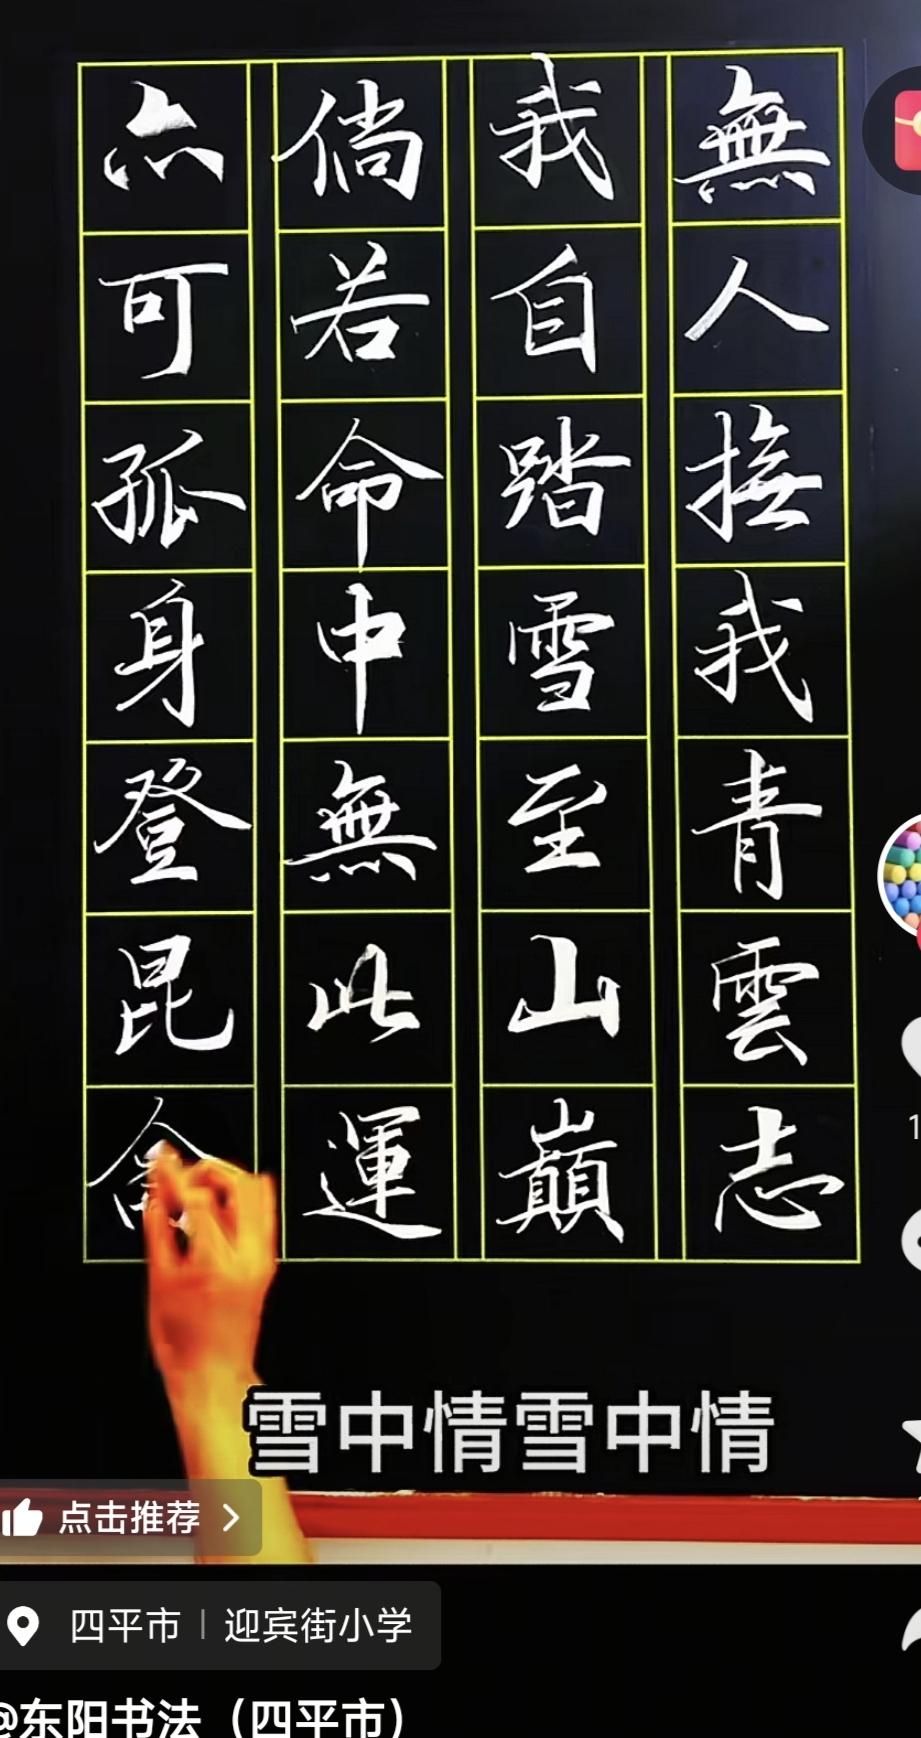 無人撫我青雲志
我自踏雪至山巔
倘若命中無此運
亦可孤身登昆侖
雪中情雪中情
点击推荐
四平市 | 迎宾街小学
@东阳书法（四平市）